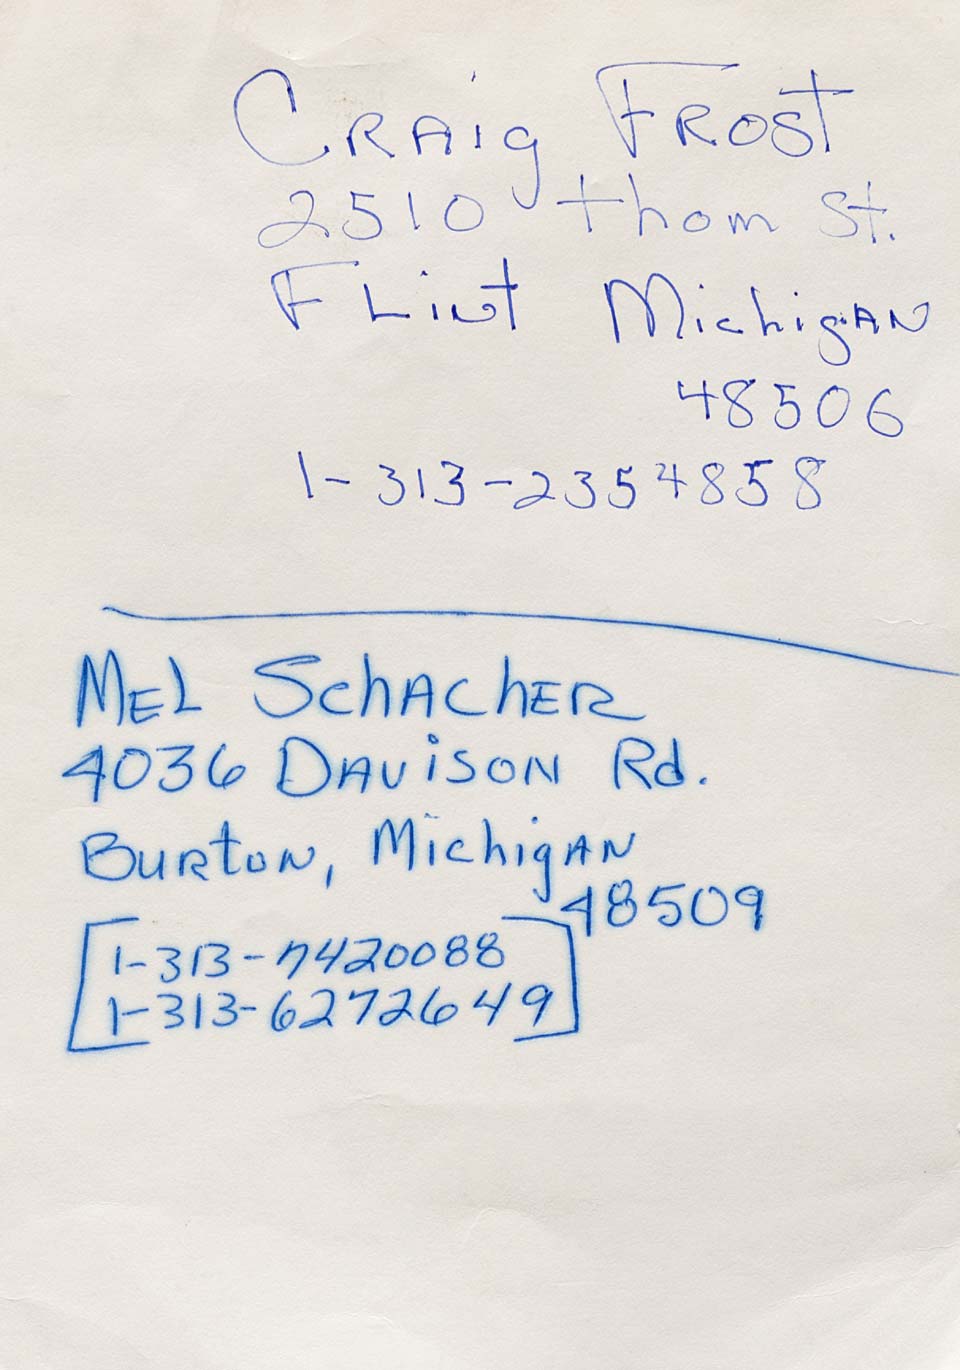 Craig Frost
2510 thom St.
Flint Michigan
48506
1-313-2354858
Mel Schacher
4036 Davison Rd.
Burton, Michigan
48509
1-313-7420088
1-313-6272649